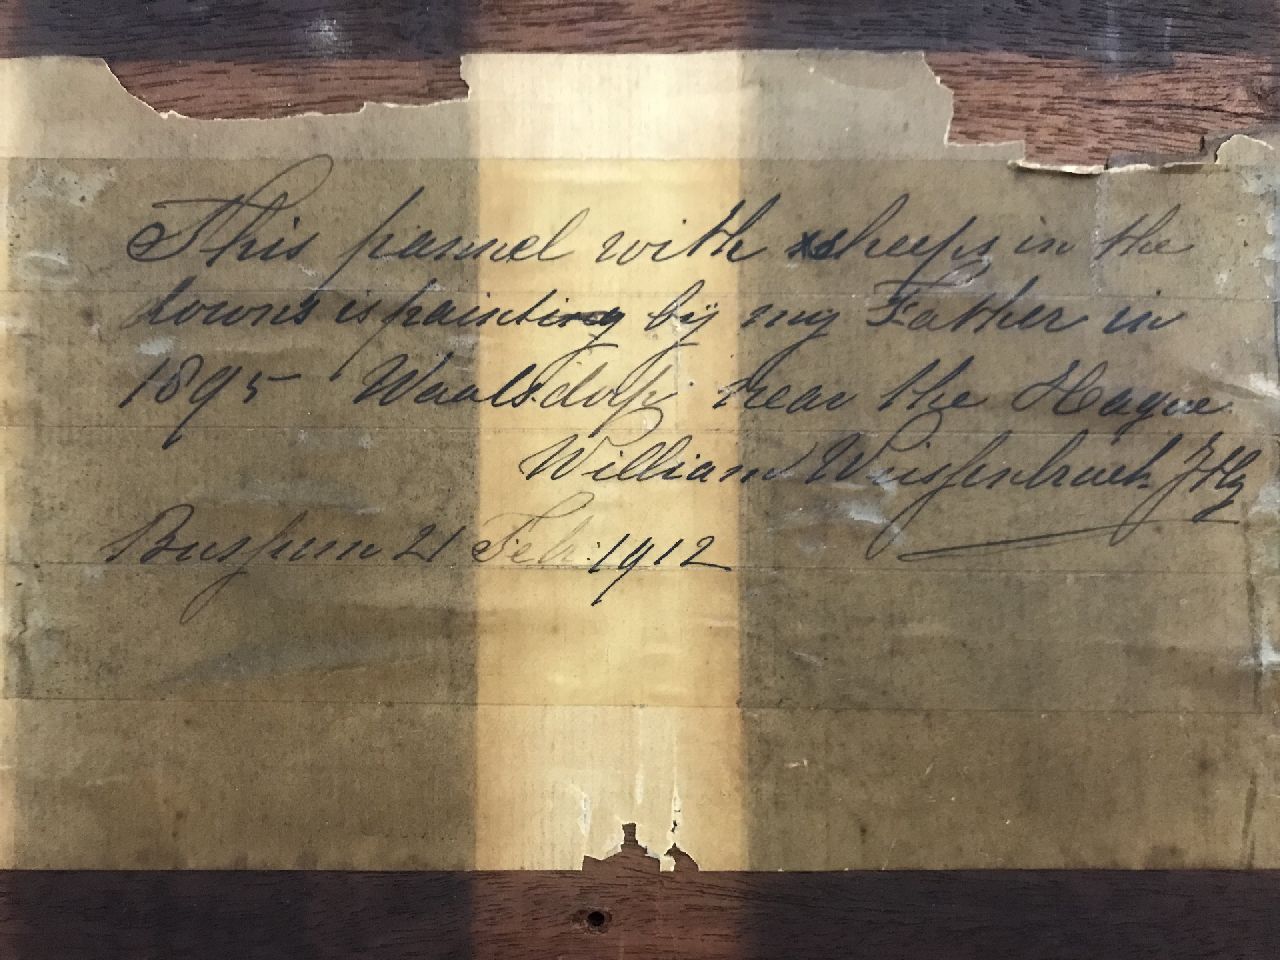 This pannel with sheeps in the
downs is painting by my Father in
1895 Waalsdorp near the Hague
William Weissenbruch JHz
Bussum 21 Feb. 1912